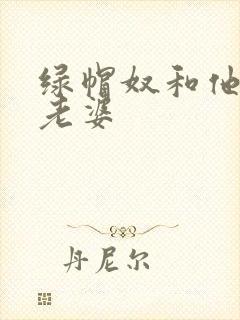 绿帽奴和他
老婆
丹尼尔